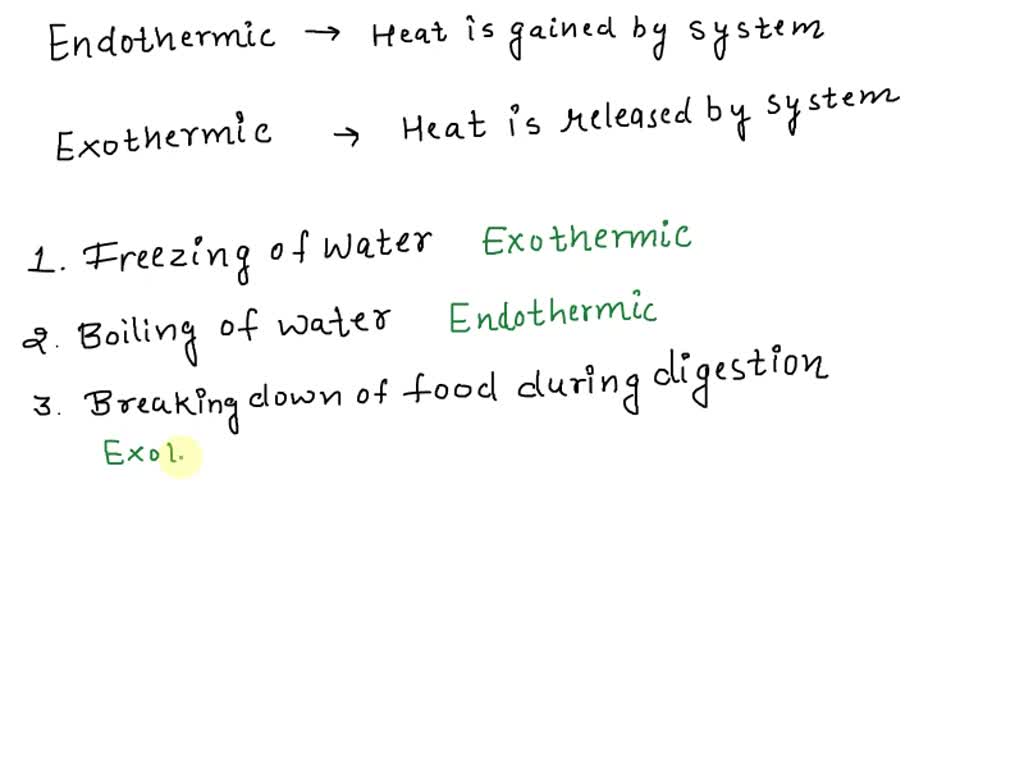 Endothermic → Heat is gained by system
Exothermic → Heat is released by system
1. Freezing of water Exothermic
2. Boiling of water Endothermic
3. Breaking down of food during digestion
Exo